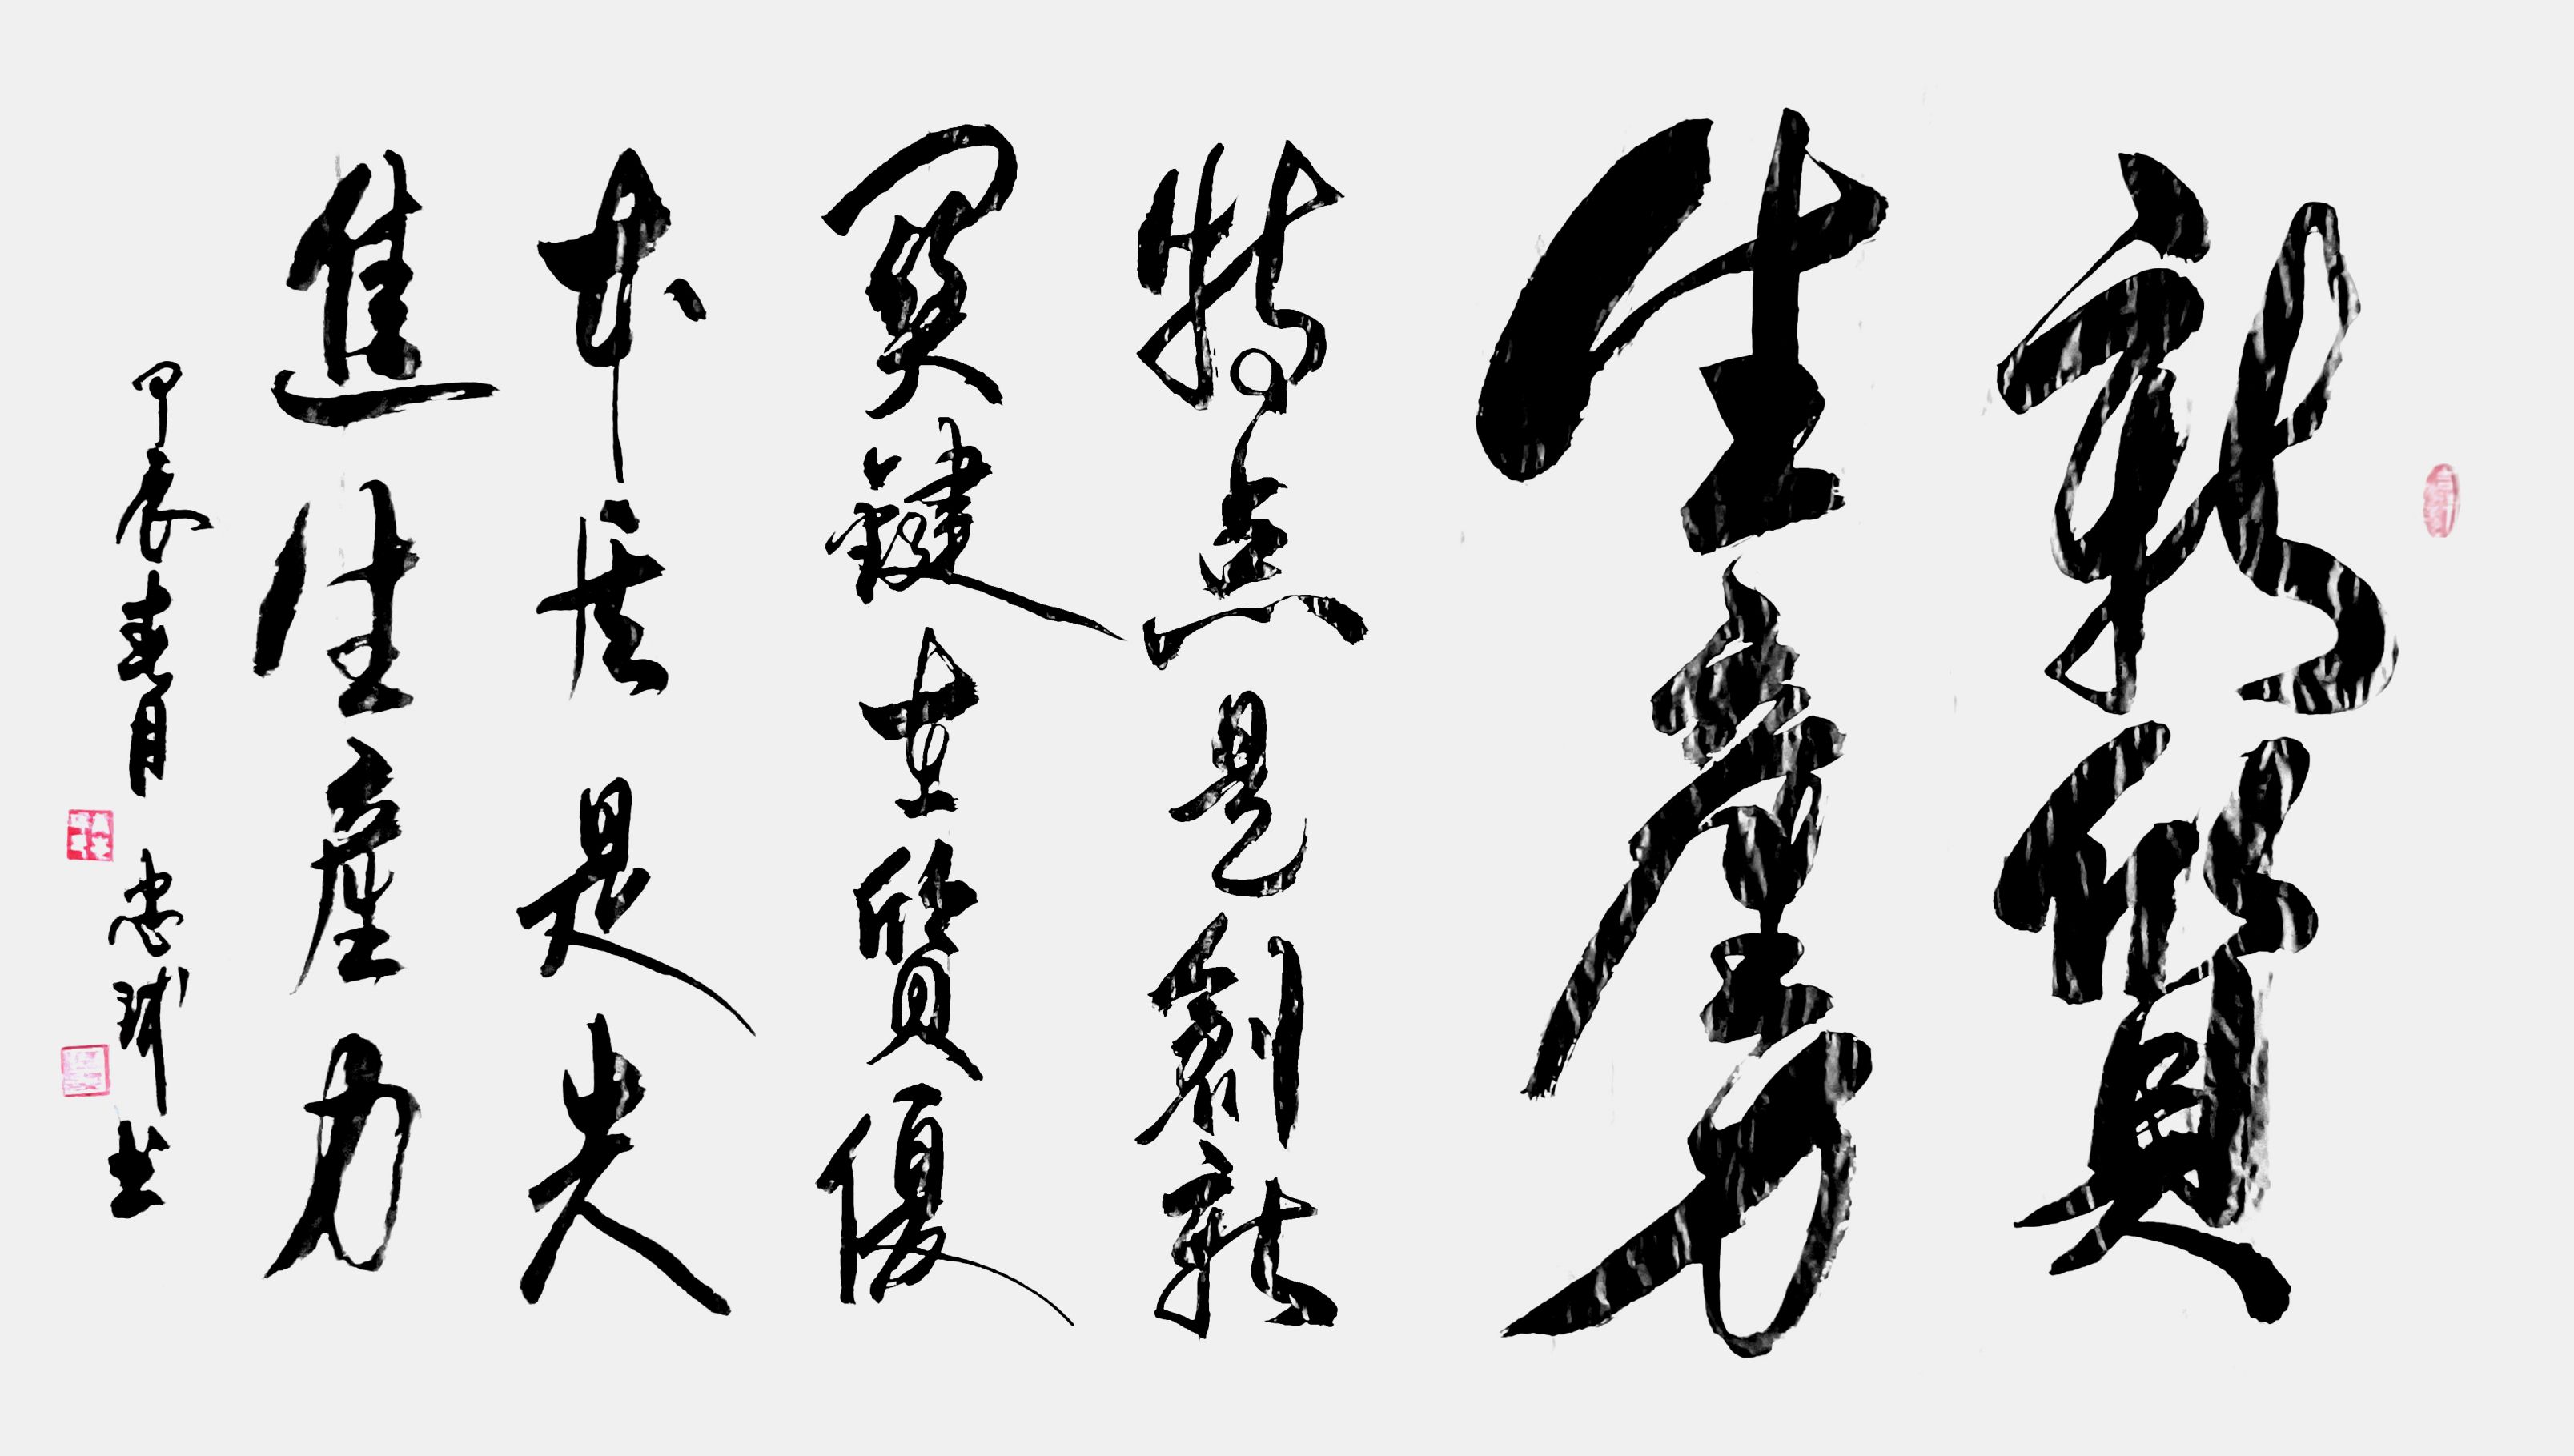 新質
生產力
特点是創新
関鍵在質優
本质是先
進生產力
甲辰春月 忠琦书